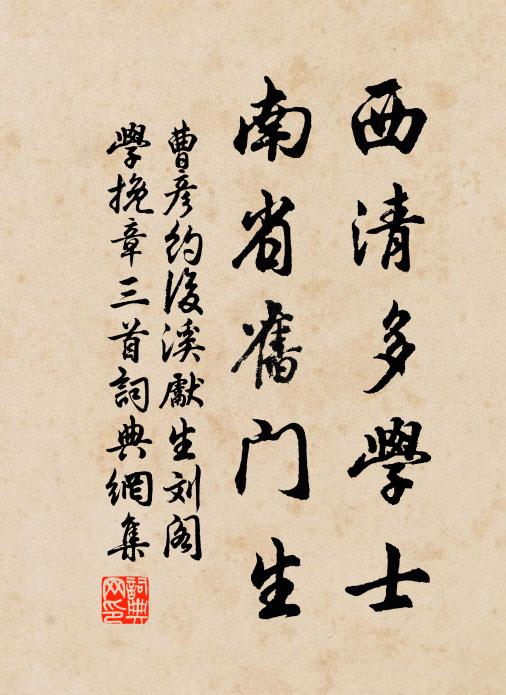 西清多學士
南省舊门生
曹彦约後溪獻生刘阁
學挽章三首詞典網集
詞典网印